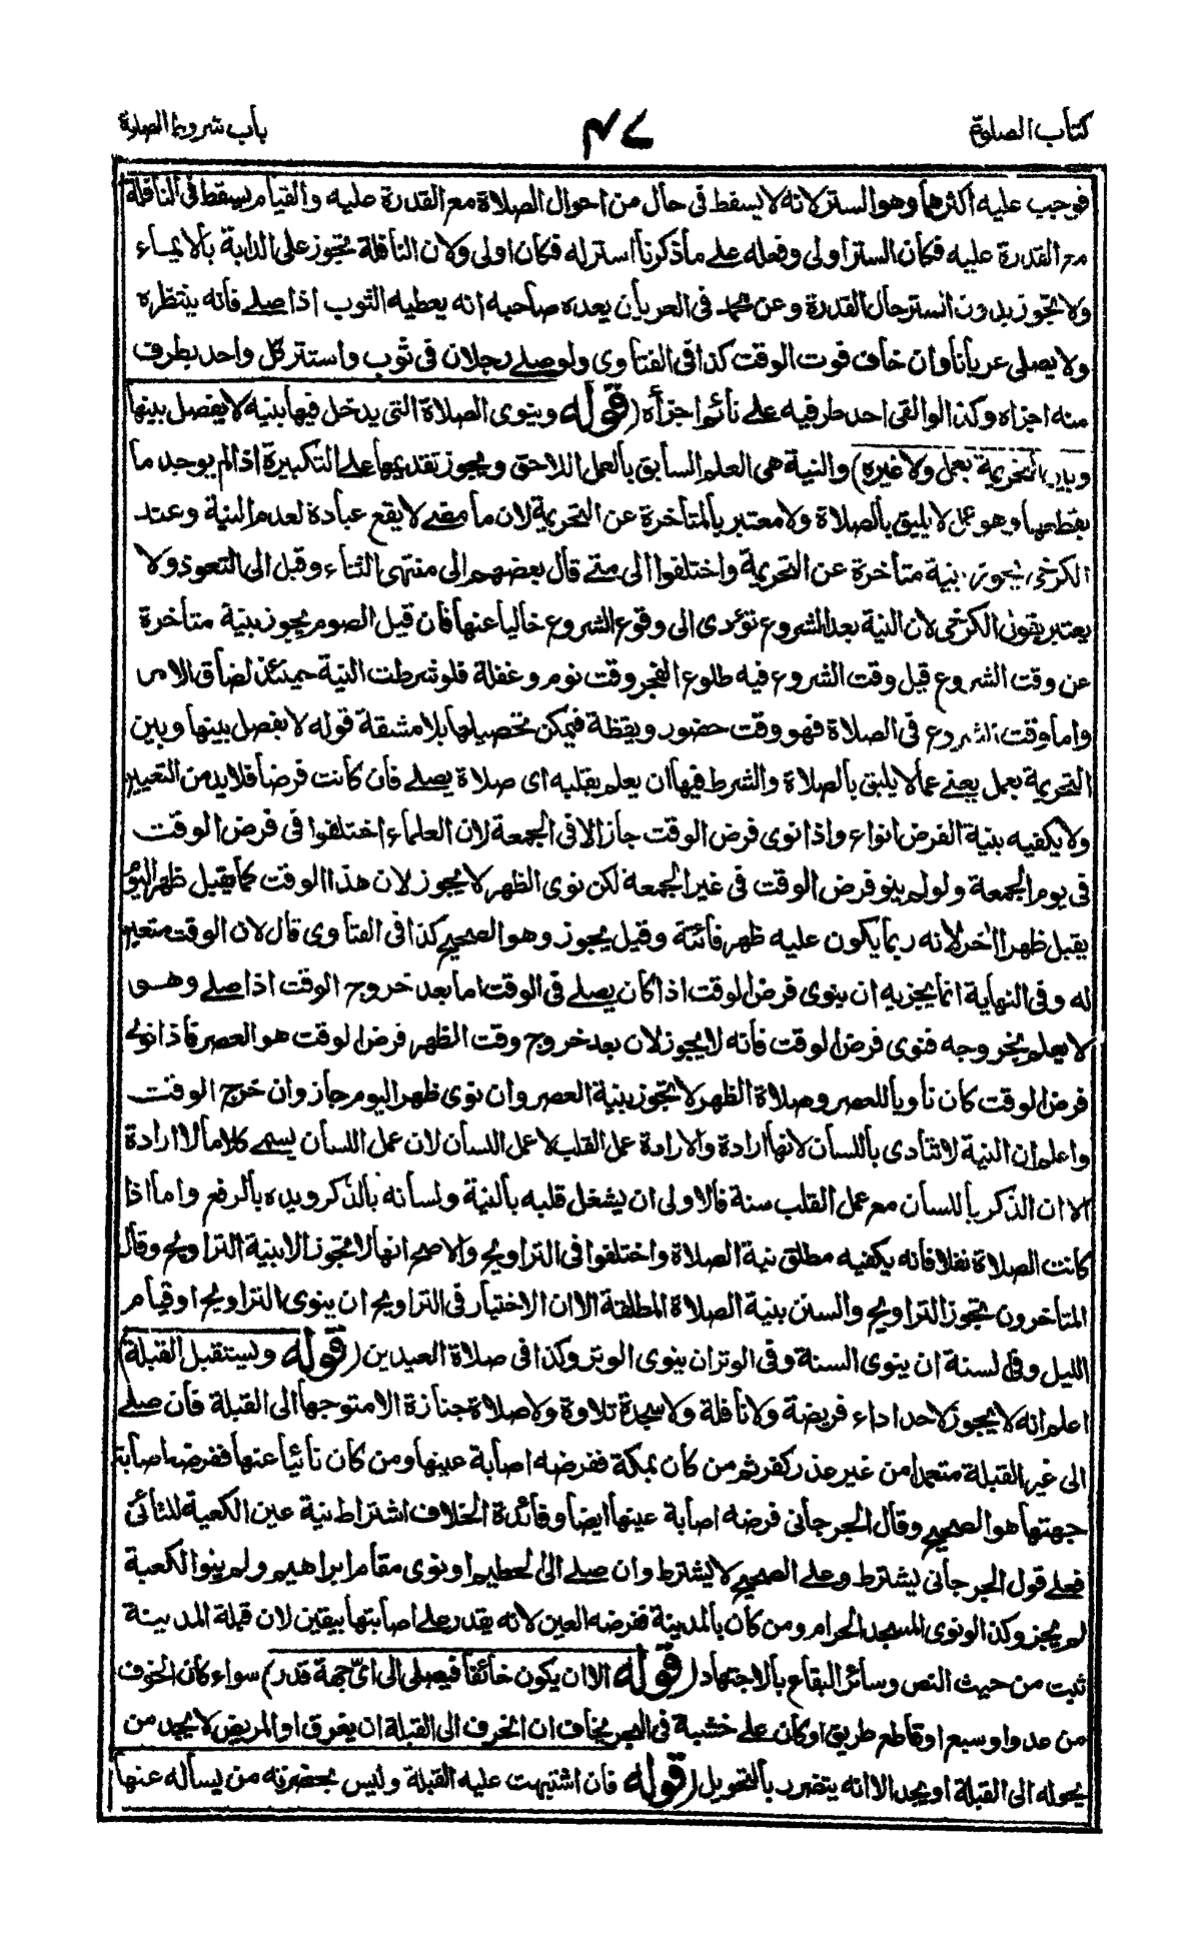 كتاب الصلوة
٤٧
باب شروط الصلوة
فوجب عليه أكثرهما وهو الستر لانه لا يسقط فى حال من احوال الصلاة مع القدرة عليه والقيام يسقط فى النافلة
مع القدرة عليه فكان الستر اولى وفعله على ما ذكرنا استر له فكان اولى ولان النافلة تجوز على الدابة بالايماء
ولا تجوز بدون الستر حال القدرة وعن محمد فى العريان يعده صاحبه انه يعطيه الثوب اذا صلى فانه ينتظره
ولا يصلى عريانا وان خاف فوت الوقت كذا فى الفتاوى ولو صلى رجلان فى ثوب واستتر كل واحد بطرف
منه اجزاه وكذا لو القى احد طرفيه على نائم اجزأه (قوله وينوى الصلاة التى يدخل فيها بنية لا يفصل بينها
وبين التحريمة بعمل ولا غيره) والنية هى العلم السابق بالعمل اللاحق ويجوز تقديمها على التكبيرة اذا لم يوجد ما
يقطعها وهو عمل لا يليق بالصلاة ولا معتبر بالمتأخرة عن التحريمة لان ما مضى لا يقع عبادة لعدم النية وعند
الكرخى يجوز بنية متأخرة عن التحريمة واختلفوا الى متى قال بعضهم الى منتهى الثناء وقيل الى التعوذ ولا
يعتبر بقول الكرخى لان النية بعد الشروع تؤدى الى وقوع الشروع خاليا عنها فان قيل الصوم يجوز بنية متأخرة
عن وقت الشروع قيل وقت الشروع فيه طلوع الفجر وقت نوم وغفلة فلو شرطت النية حينئذ لضاق الامر
واما وقت الشروع فى الصلاة فهو وقت حضور ويقظة فيمكن تحصيلها بلا مشقة قوله لا يفصل بينها وبين
التحريمة بعمل يعنى عما لا يليق بالصلاة والشرط فيها ان يعلم بقلبه اى صلاة يصلى فان كانت فرضا فلا بد من التعيين
ولا يكفيه بنية الفرض انواع واذا نوى فرض الوقت جاز الا فى الجمعة لان العلماء اختلفوا فى فرض الوقت
فى يوم الجمعة ولو لم ينو فرض الوقت فى غير الجمعة لكن نوى الظهر لا يجوز لان هذا الوقت كما يقبل ظهر اليوم
يقبل ظهرا اخر لانه ربما يكون عليه ظهر فائتة وقيل يجوز وهو الصحيح كذا فى الفتاوى قال لان الوقت متعين
له وفى النهاية انما يجزيه ان ينوى فرض الوقت اذا كان يصلى فى الوقت اما بعد خروج الوقت اذا صلى وهو
لا يعلم بخروجه فنوى فرض الوقت فانه لا يجوز لان بعد خروج وقت الظهر فرض الوقت هو العصر فاذا نوى
فرض الوقت كان ناويا للعصر وصلاة الظهر لا تجوز بنية العصر وان نوى ظهر اليوم جاز وان خرج الوقت
واعلم ان النية لا تتأدى باللسان لانها ارادة والارادة عمل القلب لا عمل اللسان لان عمل اللسان يسمى كلاما لا ارادة
الا ان الذكر باللسان مع عمل القلب سنة فالاولى ان يشغل قلبه بالنية ولسانه بالذكر ويده بالرفع واما اذا
كانت الصلاة نفلا فانه يكفيه مطلق نية الصلاة واختلفوا فى التراويح والاصح انها لا تجوز الا بنية التراويح وقال
المتأخرون تجوز التراويح والسنن بنية الصلاة المطلقة الا ان الاختيار فى التراويح ان ينوى التراويح او قيام
الليل وفى السنة ان ينوى السنة وفى الوتر ان ينوى الوتر وكذا فى صلاة العيدين (قوله ويستقبل القبلة)
اعلم انه لا يجوز لاحد اداء فريضة ولا نافلة ولا سجدة تلاوة ولا صلاة جنازة الا متوجها الى القبلة فان صلى
الى غير القبلة متعمدا من غير عذر كفر ثم من كان بمكة ففرضه اصابة عينها ومن كان نائيا عنها ففرضه اصابة
جهتها هو الصحيح وقال الجرجانى فرضه اصابة عينها ايضا وفائدة الخلاف اشتراط نية عين الكعبة للنائى
فعلى قول الجرجانى يشترط وعلى الصحيح لا يشترط وان صلى الى الحطيم او نوى مقام ابراهيم ولم ينو الكعبة
لم يجز وكذا لو نوى المسجد الحرام ومن كان بالمدينة ففرضه العين لانه يقدر على اصابتها بيقين لان قبلة المدينة
ثبت من حيث النص وسائر البقاع بالاجتهاد (قوله الا ان يكون خائفا فيصلى الى اىّ جهة قدر) سواء كان الخوف
من عدو او سبع او قاطع طريق او كان على خشبة فى البحر يخاف ان انحرف الى القبلة ان يغرق او المريض لا يجد من
يحوله الى القبلة او يجد الا انه يتضرر بالتحويل (قوله فان اشتبهت عليه القبلة وليس بحضرته من يسأله عنها